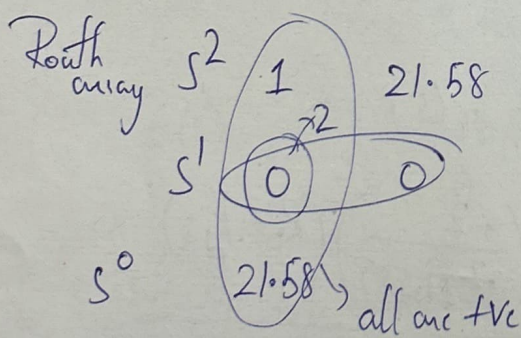 Routh array
S² 1 21.58
S¹ 0 2 0
S⁰ 21.58 all are +ve